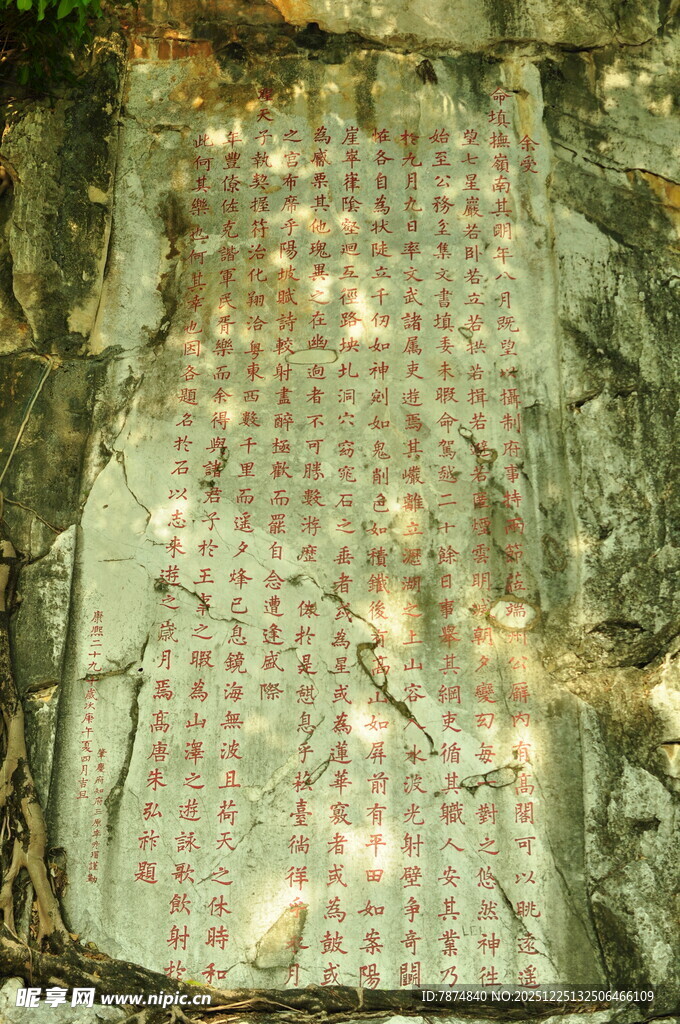 余受
命填撫嶺南其明年八月既望以攝制府事持兩節蒞端州公廨內有高閣可以眺遠遥
望七星巖若卧若立若拱若揖若
若 煙雲明滅朝夕變幻每一對之悠然神往
始至公務 集文書填委未暇命駕越二十餘日事舉其綱吏循其職人安其業乃
於九月九日率文武諸属吏遊焉其巖離立瀝湖之上山容 水波光射壁争奇闘
恠各自為状陡立千仞如神剜如鬼削色如積鐵後有高山如屏前有平田如案陽
崖崒嵂陰壑迴互徑路坱圠洞穴窈窕石之垂者或為星或為蓮華竅者或為鼓或
為觱栗其他瑰異之在幽逈者不可勝數将歷 儌於是憇息乎 臺徜徉乎水月
之宫布席乎陽坡賦詩較射盡醉極歡而罷自念遭逢盛際
聖天子執契握符治化翔洽粤東西數千里而遥夕烽已息鏡海無波且荷天之休時和
年豐僚佐克諧軍民胥樂而余得與諸君子於王事之暇為山澤之遊詠歌飲射於
此何其樂也何其幸也因各題名於石以志来遊之歳月焉高唐朱弘祚題
康熙二十九年歲次庚午夏四月吉旦
肇慶府知府
昵享网 www.nipic.cn
ID:7874840 NO:20251225132506466109